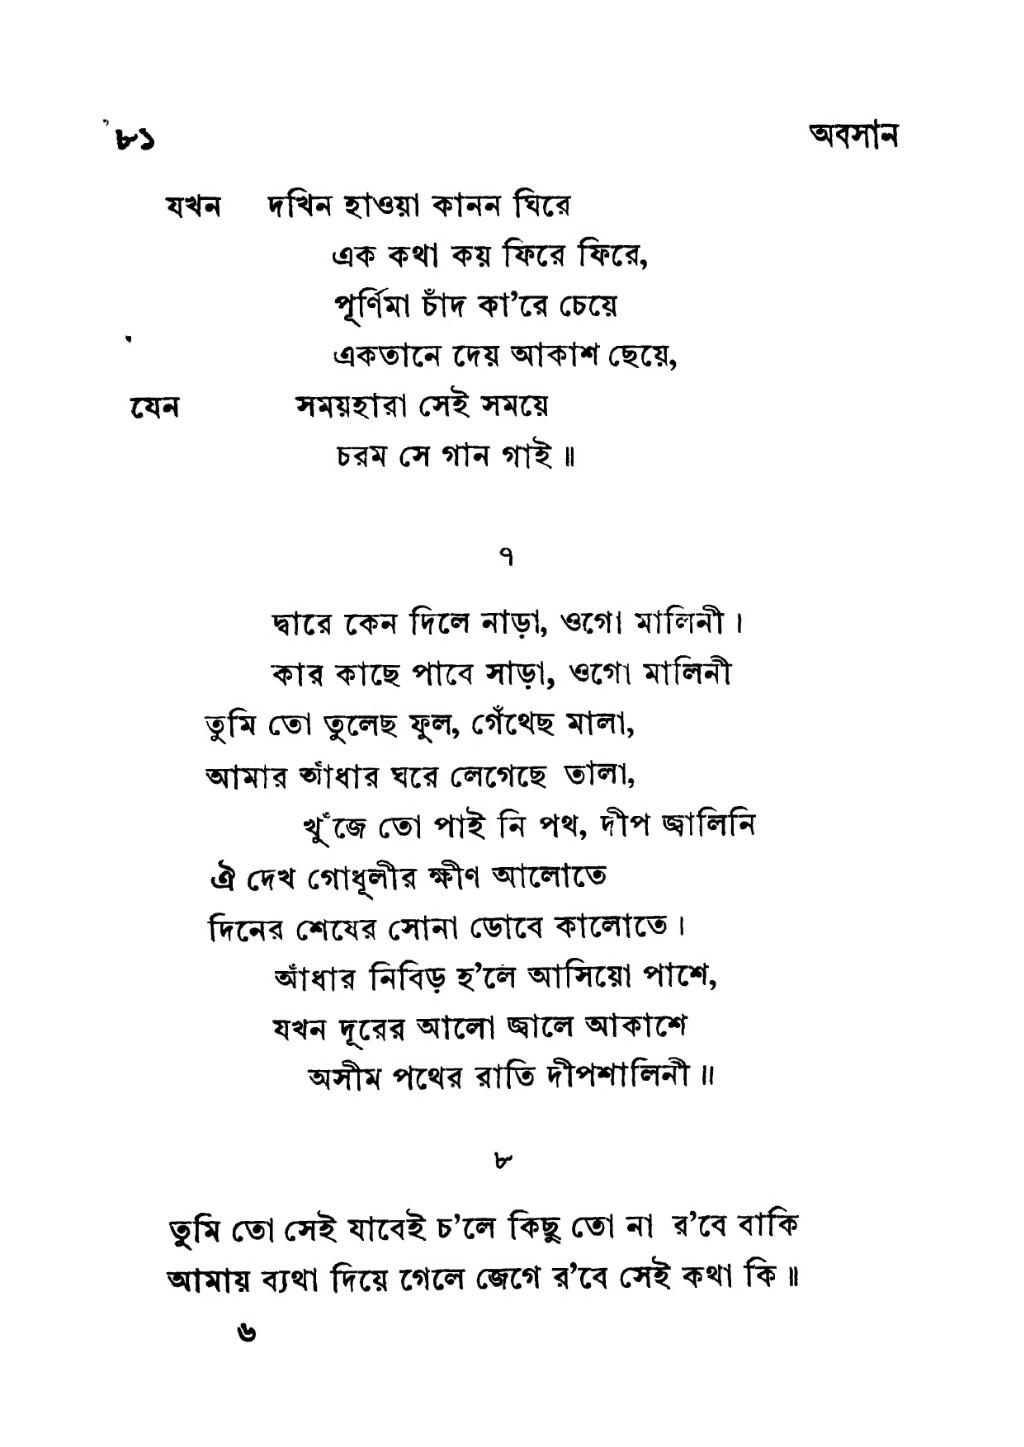 ৮১ অবসান
যখন দখিন হাওয়া কানন ঘিরে
এক কথা কয় ফিরে ফিরে,
পূর্ণিমা চাঁদ কা’রে চেয়ে
একতানে দেয় আকাশ ছেয়ে,
যেন সময়হারা সেই সময়ে
চরম সে গান গাই ॥
৭
দ্বারে কেন দিলে নাড়া, ওগো মালিনী।
কার কাছে পাবে সাড়া, ওগো মালিনী
তুমি তো তুলেছ ফুল, গেঁথেছ মালা,
আমার আঁধার ঘরে লেগেছে তালা,
খুঁজে তো পাই নি পথ, দীপ জ্বালিনি
ঐ দেখ গোধূলীর ক্ষীণ আলোতে
দিনের শেষের সোনা ডোবে কালোতে।
আঁধার নিবিড় হ’লে আসিয়ো পাশে,
যখন দূরের আলো জ্বালে আকাশে
অসীম পথের রাতি দীপশালিনী॥
৮
তুমি তো সেই যাবেই চ’লে কিছু তো না র’বে বাকি
আমায় ব্যথা দিয়ে গেলে জেগে র’বে সেই কথা কি॥
৬